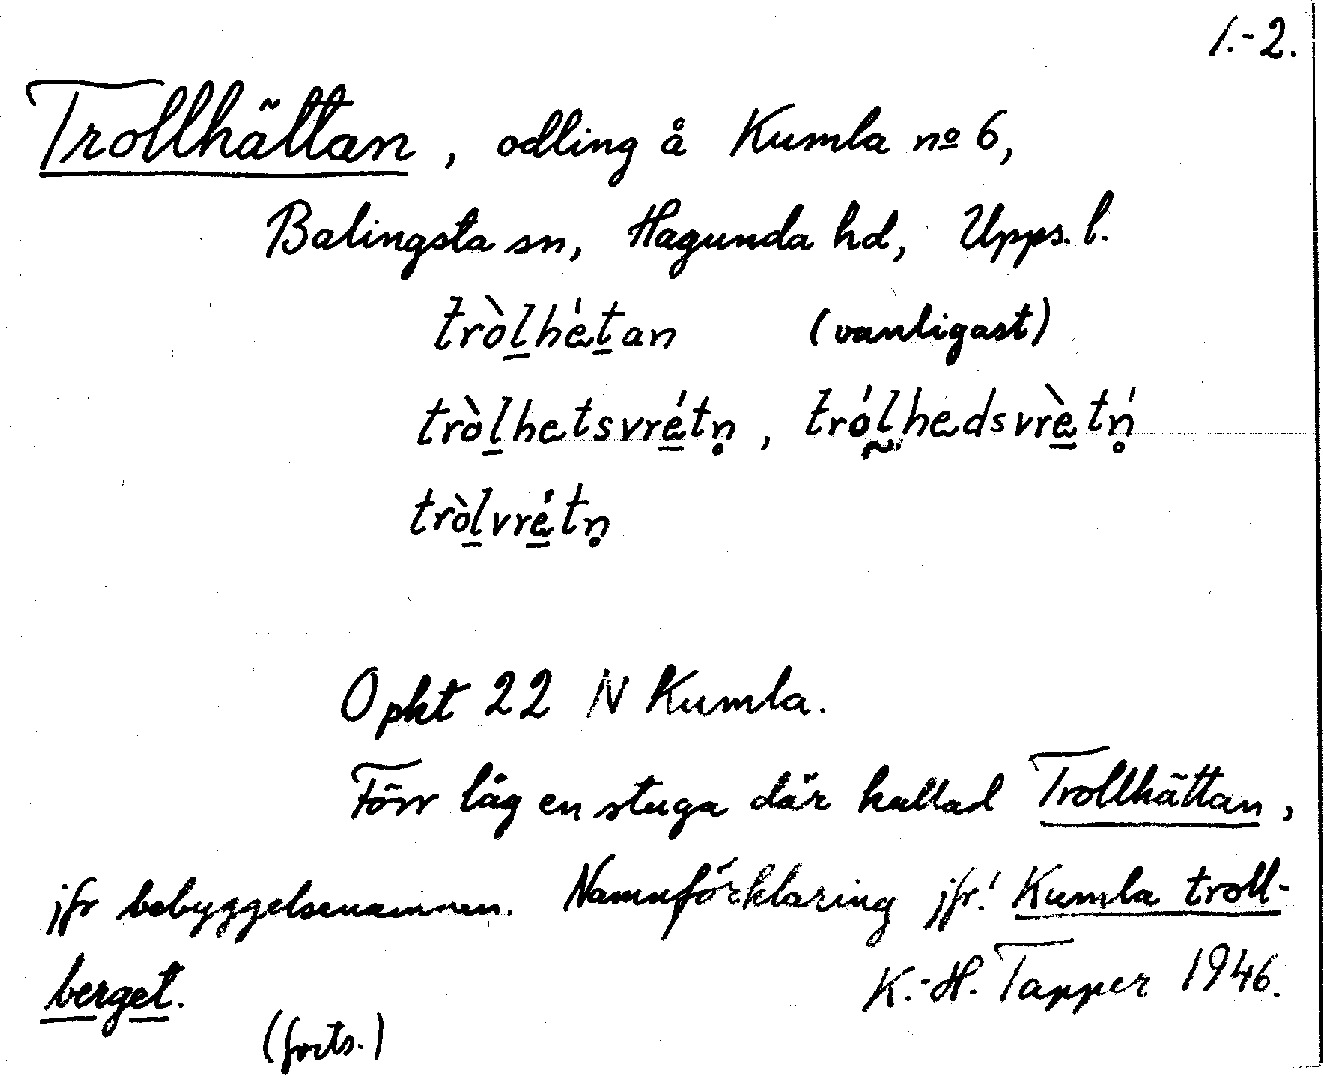 1.-2.
Trollhättan, odling å Kumla nº 6,
Balingsta sn, Hagunda hd, Upps. l.
tròl̠hét̠an (vanligast)
tròl̠hetsvré̠tn̥, tról̰hedsvrè̠tń̥
tròl̠vré̠tn̥
Opkt 22 N Kumla.
Förr låg en stuga där kallad Trollhättan,
jfr bebyggelsenamnen. Namnförklaring jfr! Kumla troll-
berget.
K.-H. Tapper 1946.
(forts.)